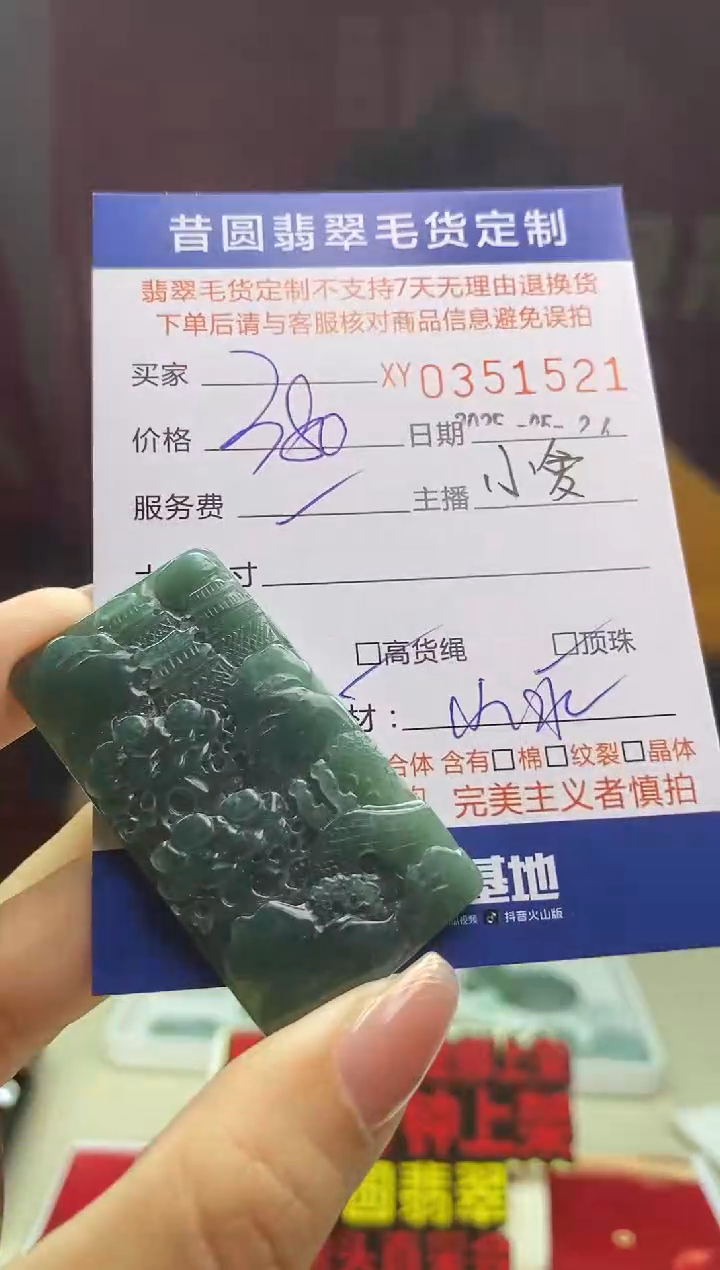 昔圆翡翠毛货定制
翡翠毛货定制不支持7天无理由退换货
下单后请与客服核对商品信息避免误拍
买家 XY0351521
价格 380 日期 2025-05-
服务费 主播 小爱
寸
高货绳 顶珠
材： 山水
合体 含有 棉 纹裂 晶体
完美主义者慎拍
基地
视频 抖音火山版
上
钟上
圆翡翠